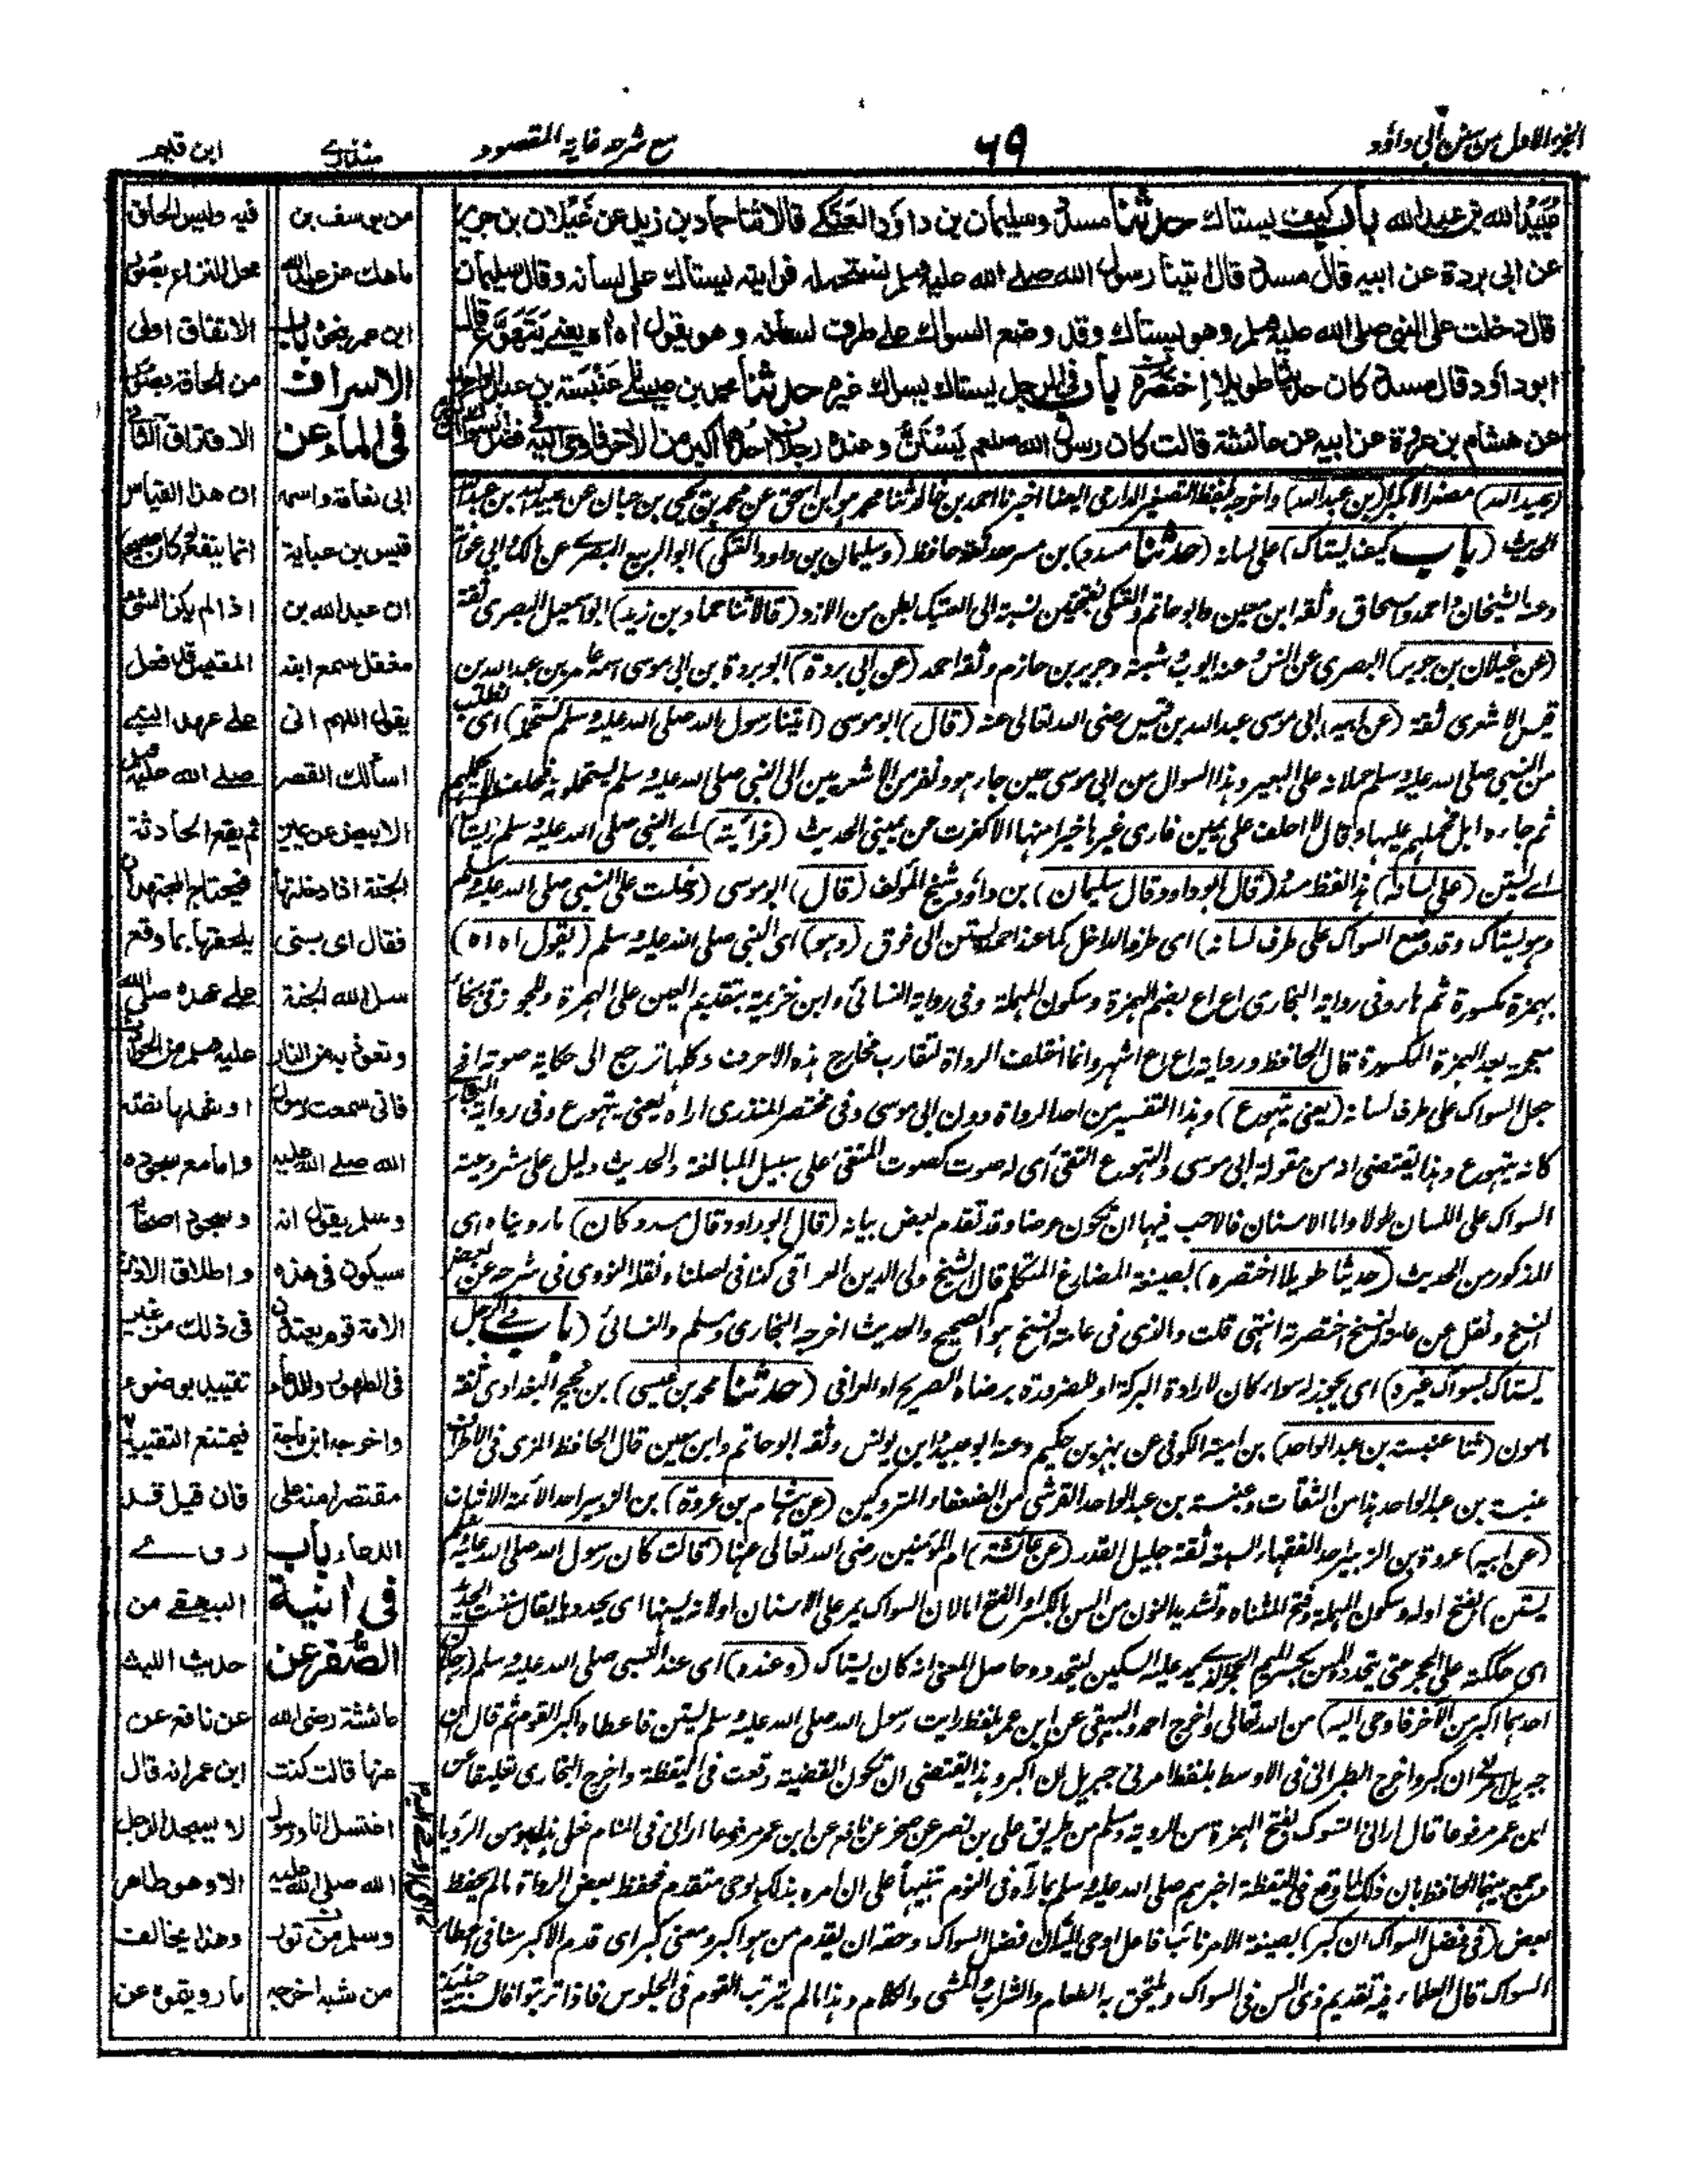 الجزء الاول من سنن أبي داؤد
٦٩
مع شرحه غاية المقصود
منذري
ابن قيم
عُبَيْدُ الله بن عبد الله باب كيف يستاك حدثنا مسدد وسليمان بن داؤد العَتَكي قالا ثنا حماد بن زيد عن غَيْلان بن جرير
عن ابى بردة عن ابيه قال مسدد قال اتينا رسول الله صلى الله عليه وسلم نستحمله فرايته يستاك على لسانه وقال سليمان
قال دخلت على النبي صلى الله عليه وسلم وهو يستاك وقد وضع السواك على طرف لسانه وهو يقول اه اه يعني يَتَهَوَّع قال
ابو داؤد قال مسدد كان حديثا طويلا اِختَصَره باب في الرجل يستاك بسواك غيره حدثنا محمد بن عيسى ثنا عَنْبَسَة بن عبد الواحد
عن هشام بن عروة عن ابيه عن عائشة قالت كان رسول الله صلعم يَسْتَنُّ وعنده رجلان احدهما اكبر من الاخر فاوحى اليه في فضل السواك
(عبيد الله) مصغرا لا مكبرا (بن عبد الله) واخرجه بلفظ التصغير الدارمى ايضا اخبرنا احمد بن خالد ثنا محمد هو ابن اسحق عن محمد بن يحيى بن حبان عن عبيد الله بن عبد الله
الحديث (باب كيف يستاك) على لسانه (حدثنا مسدد) بن مسرهد ثقة حافظ (وسليمان بن داود العتكي) ابو الربيع البصرى عن مالك وابى عوانة
وعنه الشيخان واحمد واسحاق وثقه ابن معين وابو حاتم والعتكى بفتحتين نسبة الى العتيك بطن من الازد (قالا ثنا حماد بن زيد) ابو اسمعيل البصرى ثقة
(عن غيلان بن جرير) البصرى عن انس وعنه ايوب وشعبة وجرير بن حازم وثقه احمد (عن ابى بردة) ابو بردة بن ابى موسى اسمه عامر بن عبد الله بن
قيس الاشعرى ثقة (عن ابيه) ابى موسى عبد الله بن قيس رضى الله تعالى عنه (قال) ابو موسى (اتينا رسول الله صلى الله عليه وسلم نستحمله) اى نطلب
من النبي صلى الله عليه وسلم حملانه على البعير وهذا السوال من ابى موسى حين جاء هو ونفر من الاشعريين الى النبي صلى الله عليه وسلم يستحملونه فحلف لا يحملهم
ثم جاءه ابل فحملهم عليها وقال لا احلف على يمين فارى غيرها خيرا منها الا كفرت عن يمينى الحديث (فرأيته) اى النبي صلى الله عليه وسلم (يستاك)
اى يستن (على لسانه) هذا لفظ مسدد (قال ابو داود وقال سليمان) بن داؤد شيخ المؤلف (قال) ابو موسى (دخلت على النبي صلى الله عليه وسلم
وهو يستاك وقد وضع السواك على طرف لسانه) اى طرفه الداخل كما عند احمد يستن الى فوق (وهو) اى النبي صلى الله عليه وسلم (يقول اه اه)
بهمزة مكسورة ثم هاء وفى رواية البخارى اع اع بضم الهمزة وسكون المهملة وفى رواية النسائى وابن خزيمة بتقديم العين على الهمزة وللجوزقى بخاء
معجمة بعد الهمزة المكسورة قال الحافظ ورواية اع اع اشهر وانما اختلف الرواة لتقارب مخارج هذه الاحرف وكلها ترجع الى حكاية صوته اذ
جعل السواك على طرف لسانه (يعنى يتهوع) وهذا التفسير من احد الرواة دون ابى موسى وفى مختصر المنذرى اراه يعنى يتهوع وفى رواية البخارى
كانه يتهوع وهذا يقتضى انه من مقولة ابى موسى والتهوع التقئ اى له صوت كصوت المتقئ على سبيل المبالغة والحديث دليل على مشروعية
السواك على اللسان طولا واما الاسنان فالاحب فيها ان تكون عرضا وقد تقدم بعض بيانه (قال ابو داود وقال مسدد كان) ما رويناه اى
المذكور من الحديث (حديثا طويلا اختصره) بصيغة المضارع المتكلم قال الشيخ ولى الدين العراقى كذا فى اصلنا ونقله النووى فى شرحه عن بعض
النسخ ونقل عن عامة النسخ اختصرته انتهى قلت والذى فى عامة النسخ هو الصحيح والحديث اخرجه البخارى ومسلم والنسائى (باب فى الرجل
يستاك بسواك غيره) اى يجوز سواء كان لارادة البركة او للضرورة برضاه الصريح او العرفى (حدثنا محمد بن عيسى) بن نجيح البغدادى ثقة
مامون (ثنا عنبسة بن عبد الواحد) بن امية الكوفى عن بهز بن حكيم وعنه ابو عبيد وابن يونس وثقه ابو حاتم وابن معين قال الحافظ المزى فى الاطراف
عنبسة بن عبد الواحد هذا من الثقات وعنبسة بن عبد الواحد القرشى من الضعفاء المتروكين (عن هشام بن عروة) بن الزبير احد الائمة الاثبات
(عن ابيه) عروة بن الزبير احد الفقهاء السبعة ثقة جليل القدر (عن عائشة) ام المؤمنين رضى الله تعالى عنها (قالت كان رسول الله صلى الله عليه وسلم
يستن) بفتح اوله وسكون المهملة وفتح المثناة وتشديد النون من السن بالكسر او الفتح اما لان السواك يمر على الاسنان او لانه يسنها اى يحددها يقال سننت الحديد
اى حككته على الحجر حتى يتحدد والمسن بكسر الميم الحجر الذى يمر عليه السكين ليتحدد وحاصل المعنى انه كان يستاك (وعنده) اى عند النبي صلى الله عليه وسلم (رجلان
احدهما اكبر من الآخر فاوحى اليه) من الله تعالى واخرج احمد والبيهقى عن ابن عمر بلفظ رايت رسول الله صلى الله عليه وسلم يستن فاعطاه اكبر القوم ثم قال ان
جبريل امرنى ان اكبر واخرج الطبرانى فى الاوسط بلفظ امرنى جبريل ان اكبر وهذا يقتضى ان تكون القضية وقعت فى اليقظة واخرج البخارى تعليقا عن
ابن عمر مرفوعا قال ارانى اتسوك بفتح الهمزة من الروية ومسلم من طريق على بن نصر عن صخر عن نافع عن ابن عمر مرفوعا ارانى فى المنام فعلى هذا فهو من الرؤيا
وجمع بينهما الحافظ بان ذلك لما وقع فى اليقظة اخبرهم صلى الله عليه وسلم بما رآه فى النوم تنبيها على ان امره بذلك بوحى متقدم فحفظ بعض الرواة ما لم يحفظ
بعض (فى فضل السواك ان كبر) بصيغة الامر نائب فاعل اوحى اليه ان فضل السواك وحقه ان يقدم من هو اكبر ومعنى كبر اى قدم الاكبر سنا فى اعطاء
السواك قال العلماء فيه تقديم ذى السن فى السواك ويلتحق به الطعام والشراب والمشى والكلام وهذا ما لم يترتب القوم فى الجلوس فاذا ترتبوا فالسنة حينئذ
من يوسف بن
ماهك عن عبد الله
ابن عمر بنحوه باب
الاسراف
فى الماء عن
ابى نعامة واسمه
قيس بن عباية
ان عبد الله بن
مغفل سمع ابنه
يقول اللهم انى
اسألك القصر
الابيض عن يمين
الجنة اذا دخلتها
فقال اى بنى
سل الله الجنة
وتعوذ به من النار
فانى سمعت رسول
الله صلى الله عليه
وسلم يقول انه
سيكون فى هذه
الامة قوم يعتدون
فى الطهور والدعاء
واخرجه ابن ماجة
مقتصرا منه على
الدعاء باب
فى آنية
الصُّفر عن
عائشة رضى الله
عنها قالت كنت
اغتسل انا ورسول
الله صلى الله عليه
وسلم من تور
من شبه اخرجه
فيه وليس الحاق
محل النزاع بصور
الاتفاق اولى
من الحاقه بصور
الافتراق الثانى
ان هذا القياس
انما ينفع لو كان صحيحا
اذا لم يكن الشئ
المقيس قد فعل
على عهد النبى
صلى الله عليه وسلم
ثم يقع الحادثة
فيحتاج المجتهدون
يلحقها بما وقع
على عهده صلى الله
عليه وسلم من الحوادث
او شملها نصه
واما مع سجوده
وسجود اصحابه
واطلاق الاذن
فى ذلك من غير
تقييد بوضوء
فيمتنع التقييد
فان قيل فقد
روى
البيهقى من
حديث الليث
عن نافع عن
ابن عمر انه قال
لا يسجد الرجل
الا وهو طاهر
وهذا يخالف
ما رويتموه عن